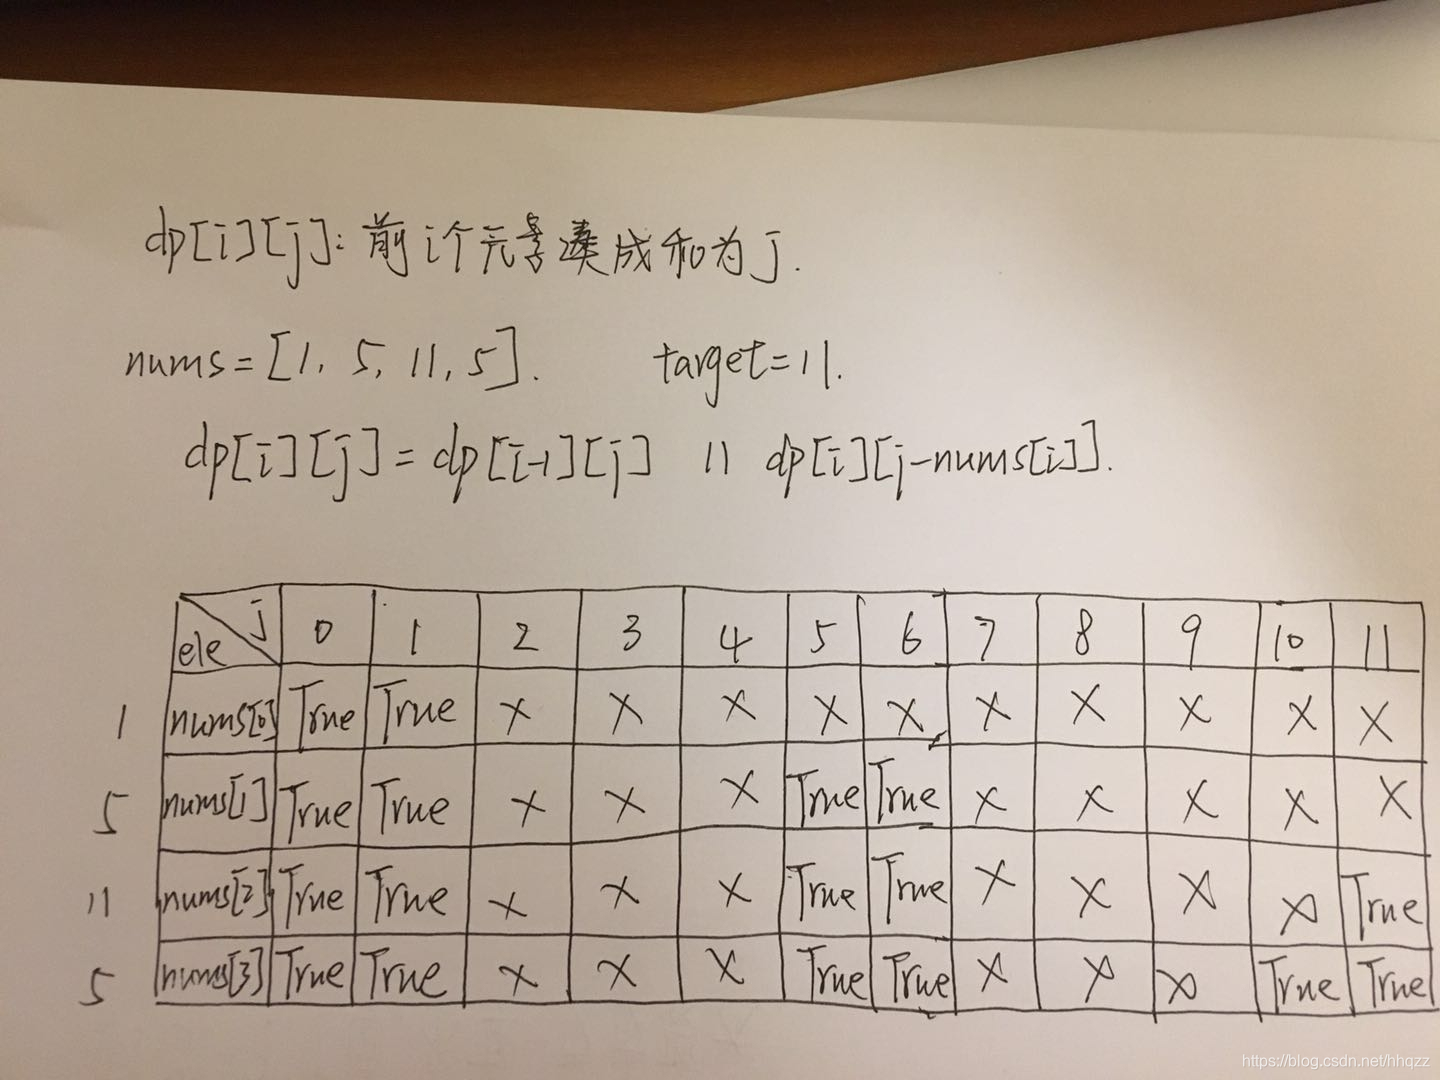 dp[i][j]: 前i个元素凑成和为j.
nums = [1, 5, 11, 5]. target = 11.
dp[i][j] = dp[i-1][j] || dp[i][j-nums[i]].
ele j 0 1 2 3 4 5 6 7 8 9 10 11
1 nums[0] True True × × × × × × × × × ×
5 nums[1] True True × × × True True × × × × ×
11 nums[2] True True × × × True True × × × × True
5 nums[3] True True × × × True True × × × True True
https://blog.csdn.net/hhqzz